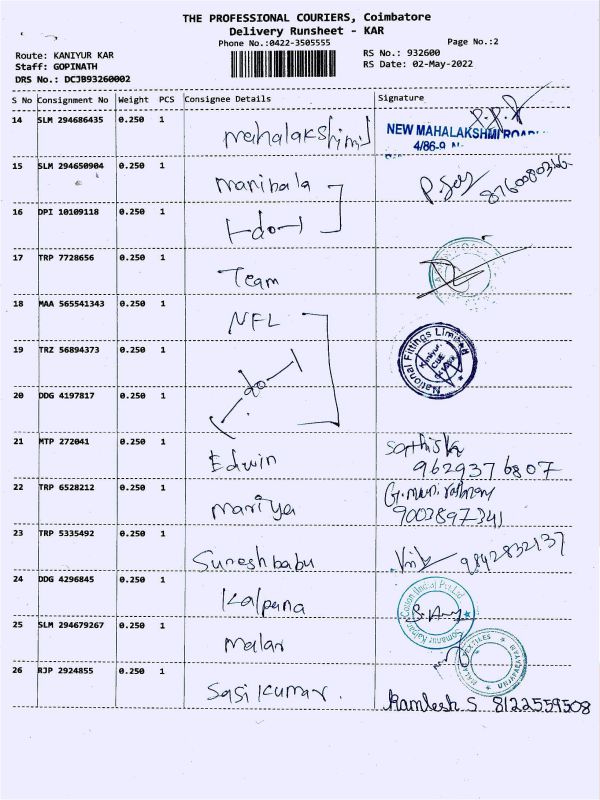 THE PROFESSIONAL COURIERS, Coimbatore
Delivery Runsheet - KAR
Phone No.:0422-3505555
Page No.:2
Route: KANIYUR KAR
RS No.: 932600
Staff: GOPINATH
RS Date: 02-May-2022
DRS No.: DCJB93260002
S No Consignment No Weight PCS Consignee Details Signature
14 SLM 294686435 0.250 1 Mahalakshimi
NEW MAHALAKSHMI ROAD
4/86-9
15 SLM 294650904 0.250 1 Manibala
16 DPI 10109118 0.250 1 -do-
17 TRP 7728656 0.250 1 Team
18 MAA 565541343 0.250 1 NFL
National Fittings Limited
19 TRZ 56894373 0.250 1 do
20 DDG 4197817 0.250 1
21 MTP 272041 0.250 1 Edwin
9629376807
22 TRP 6528212 0.250 1 Mariya
9003897341
23 TRP 5335492 0.250 1 Sureshbabu 9842832137
24 DDG 4296845 0.250 1 Kalpana
25 SLM 294679267 0.250 1 Malar
26 RJP 2924855 0.250 1 Sasikumar.
Kamlesh S 8122559508